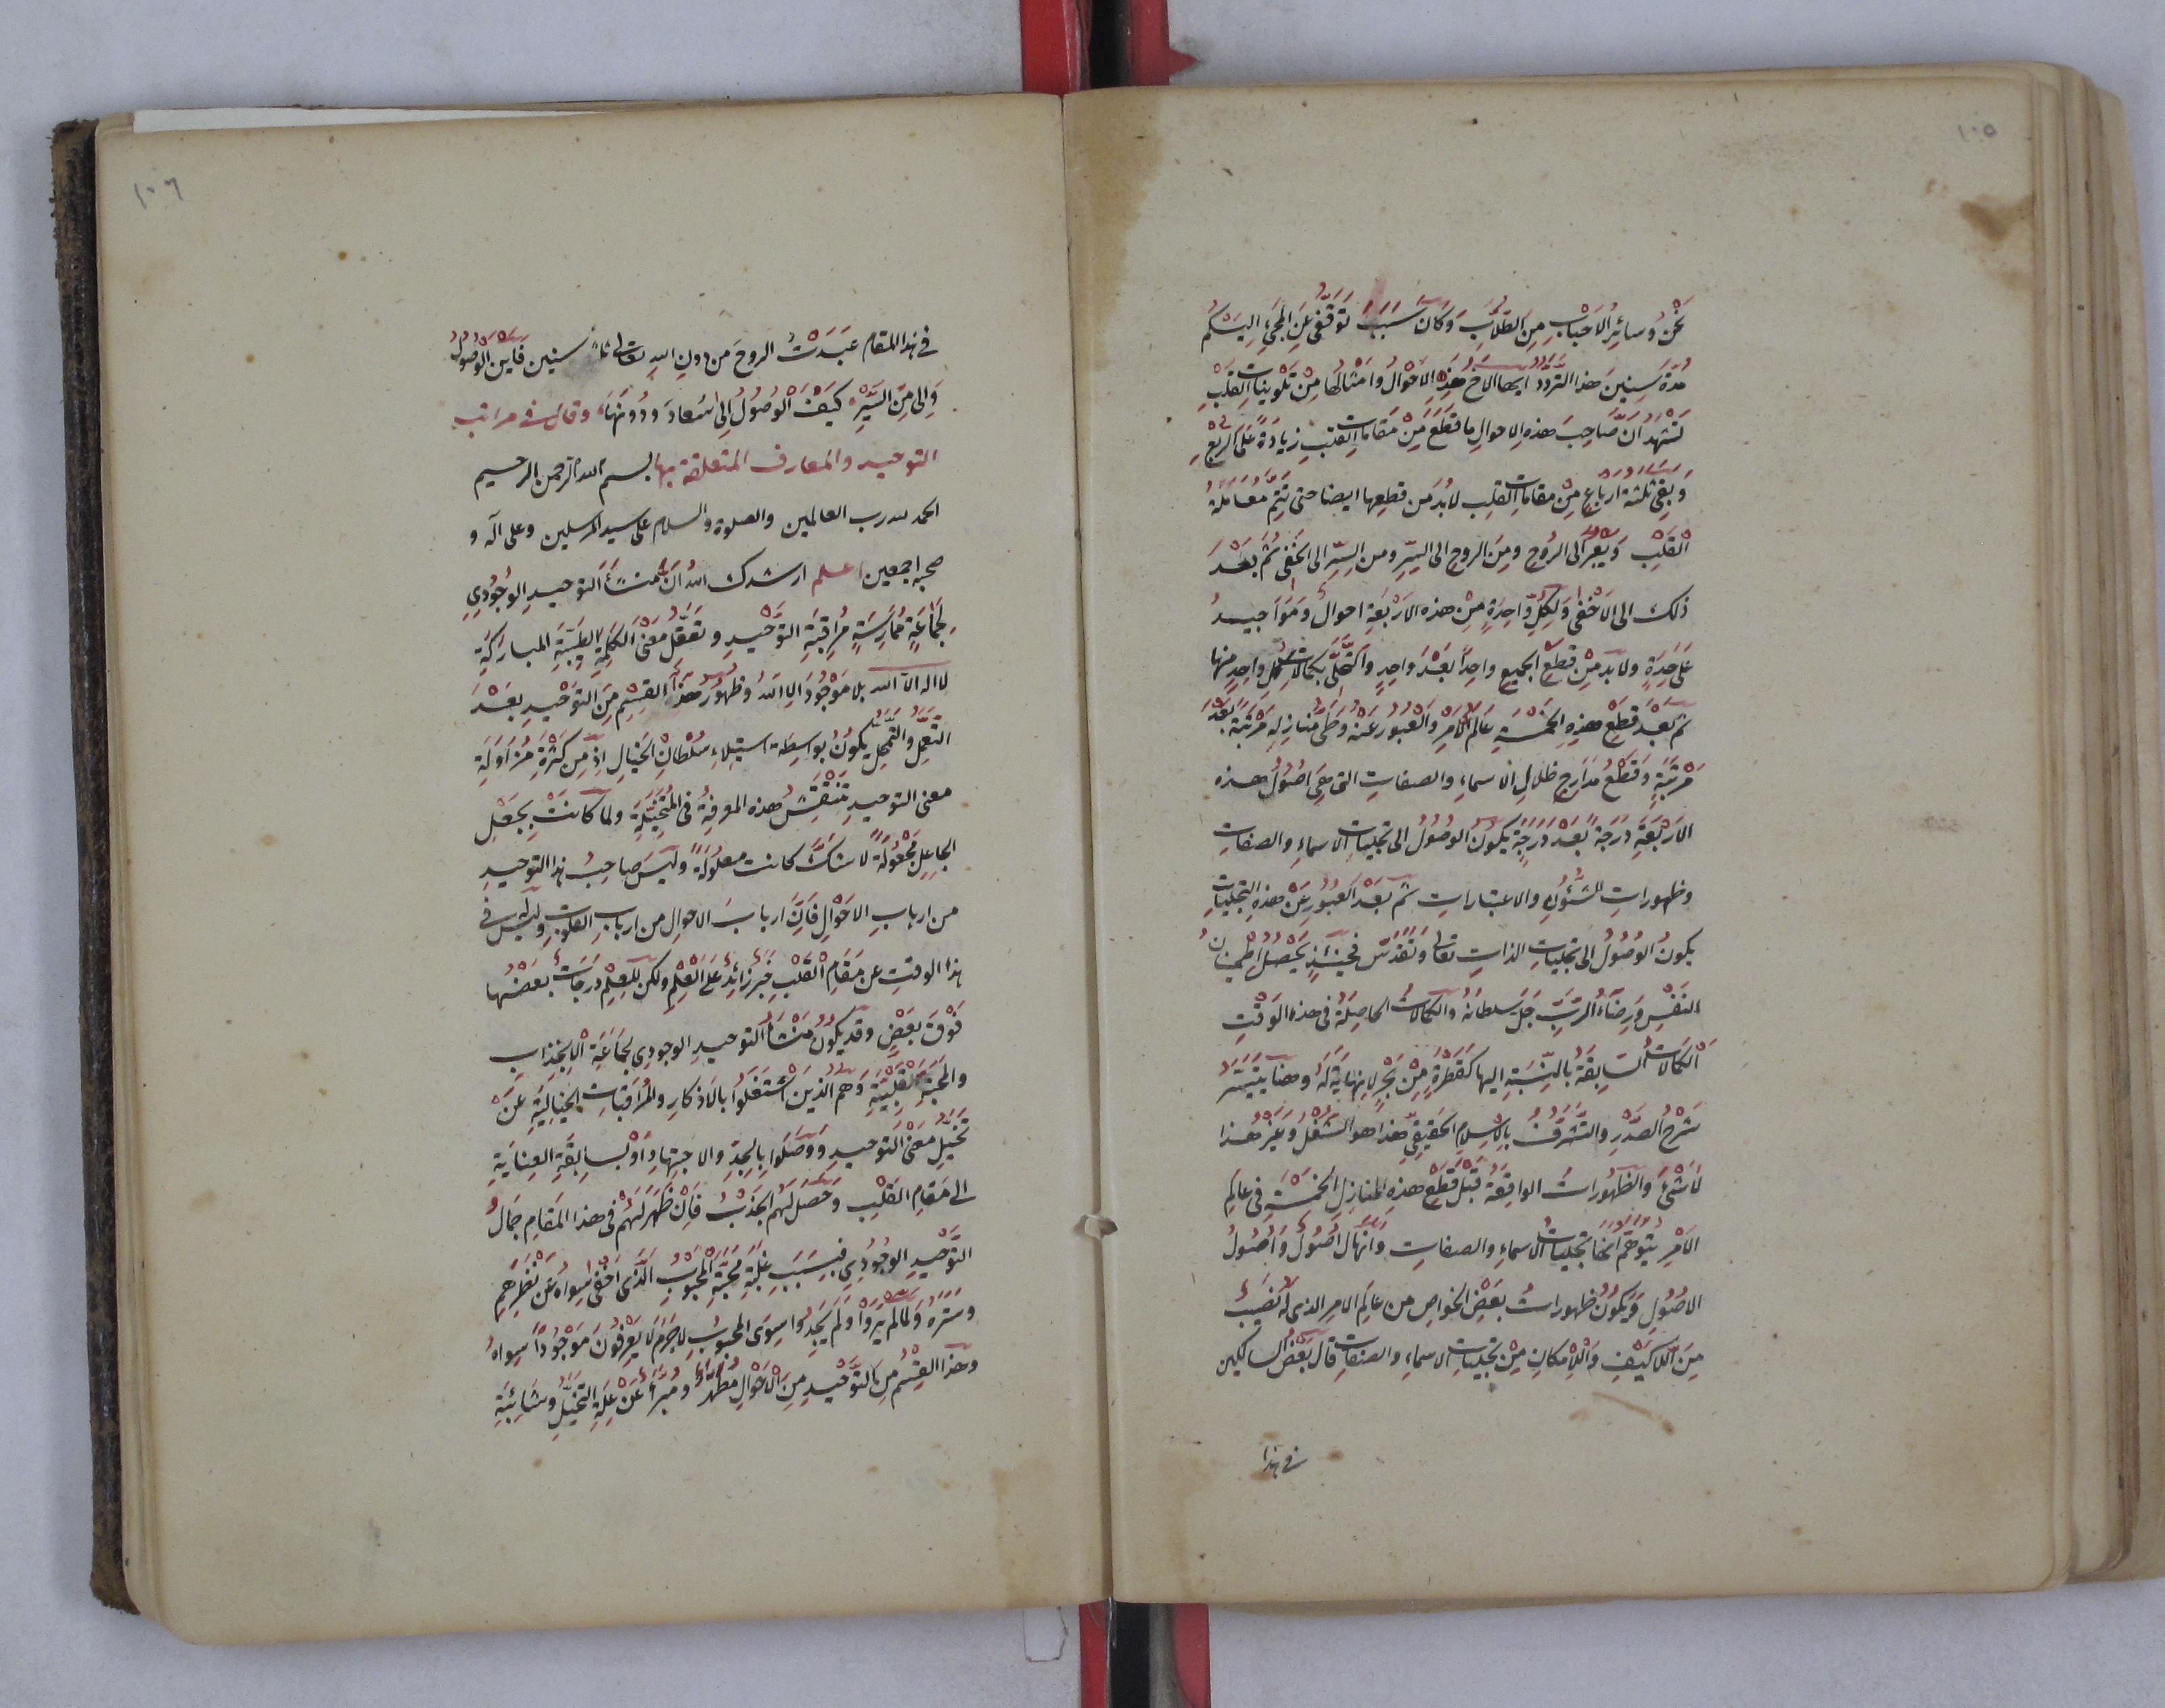 ١٠٥
نحن وسائر الاحباب من الطلاب وكان سبب توقفى عن المجئ اليكم
مدة سنين هذا التردد ايها الاخ هذه الاحوال وامثالها من تلوينات القلب
نشهد ان صاحب هذه الاحوال ما قطع من مقامات القلب زيادة على الربع
وبقى ثلثة ارباع من مقامات القلب لابد من قطعها ايضا حتى تتم معاملة
القلب ويعبر الى الروح ومن الروح الى السر ومن السر الى الخفى ثم بعد
ذلك الى الاخفى ولكل واحدة من هذه الاربعة احوال ومواجيد
على حدة ولابد من قطع الجميع واحدا بعد واحد والتحلى بكمالات كل واحد منها
ثم بعد قطع هذه الخمسة عالم الامر والعبور عنه وطى منازله مرتبة بعد
مرتبة وقطع مدارج ظلال الاسماء والصفات التى هى اصول هذه
الاربعة درجة بعد درجة يكون الوصول الى تجليات الاسماء والصفات
وظهورات الشؤن والاعتبارات ثم بعد العبور عن هذه التجليات
يكون الوصول الى تجليات الذات تعالى وتقدس فحينئذ يحصل اطمينان
النفس ورضاء الرب جل سلطانه والكمالات الحاصلة فى هذه الوقت
الكمالات السابقة بالنسبة اليها كقطرة من بحر لا نهاية له وهنا يتيسر
شرح الصدر والتشرف بالاسلام الحقيقى هذا هو الشغل وغير هذا
لا شئ والظهورات الواقعة قبل قطع هذه المنازل الخمسة فى عالم
الامر يتوهم انها تجليات الاسماء والصفات وانها ل اصول واصول
الاصول ويكون ظهورات بعض الخواص من عالم الامر الذى له نصيب
من اللاكيف واللامكان من تجليات الاسماء والصفات قال بعض السالكين
فى هذا
١٠٦
فى هذا المقام عبدت الروح من دون الله تعالى ثلثين سنين فاين الوصول
والى من السير كيف الوصول الى سعاد ودونها وقال فى مراتب
التوحيد والمعارف المتعلقة بها بسم الله الرحمن الرحيم
الحمد لله رب العالمين والصلوة والسلام على سيد المرسلين وعلى آله و
صحبه اجمعين اعلم ارشدك الله ان منشأ التوحيد الوجودى
لجماعة ممارسة مراقبة التوحيد وتعقل معنى الكلمة الطيبة المباركة
لا اله الا الله بلا موجود الا الله وظهور هذا القسم من التوحيد بعد
التعمل والتمحل يكون بواسطة استيلاء سلطان الخيال اذ من كثرة مزاولة
معنى التوحيد تنتقش هذه المعرفة فى المتخيلة ولما كانت بجعل
الجاعل مجعولة لا شك كانت معلولة وليس صاحب هذا التوحيد
من ارباب الاحوال فان ارباب الاحوال من ارباب القلوب وليس له فى
هذا الوقت عن مقام القلب خبر زائد على العلم ولكن للعلم درجات بعضها
فوق بعض وقد يكون منشأ التوحيد الوجودى لجماعة الانجذاب
والمحبة القلبية وهم الذين اشتغلوا بالاذكار والمراقبات الخيالية عن
تخيل معنى التوحيد ووصلوا بالجد والاجتهاد او بسابقة العناية
الى مقام القلب وحصل لهم الجذب فان ظهر لهم فى هذا المقام جمال
التوحيد الوجودى فبسبب غلبة محبة المحبوب الذى اخفى سواه عن نظرهم
وستره ولما لم يروا ولم يجدوا سوى المحبوب لا جرم لا يعرفون موجودا سواه
وهذا القسم من التوحيد من الاحوال مطهر ومبرأ عن علة التخيل وشائبة